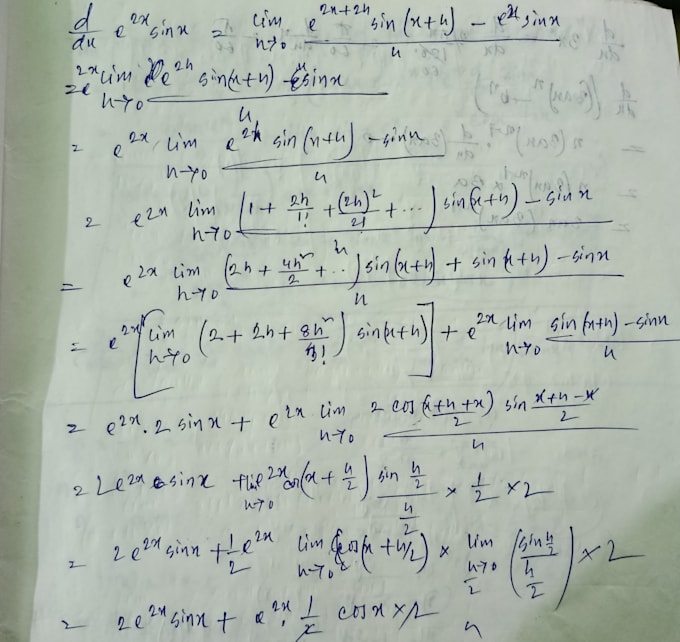 d/dx e^{2x} sin x = lim_{h→0} (e^{2x+2h} sin (x+h) - e^{2x} sin x)/h
= e^{2x} lim_{h→0} (e^{2h} sin(x+h) - sin x)/h
= e^{2x} lim_{h→0} (e^{2h} sin (x+h) - sin x)/h
= e^{2x} lim_{h→0} ((1 + 2h/1! + (2h)^2/2! + ...) sin(x+h) - sin x)/h
= e^{2x} lim_{h→0} ((2h + 4h^2/2 + ..) sin(x+h) + sin (x+h) - sin x)/h
= e^{2x} [lim_{h→0} (2 + 2h + 8h^2/3!) sin(x+h)] + e^{2x} lim_{h→0} (sin (x+h) - sin x)/h
= e^{2x}. 2 sin x + e^{2x} lim_{h→0} (2 cos (x+h+x)/2 sin (x+h-x)/2)/h
= 2e^{2x} sin x + e^{2x} h→0 cos(x + h/2) (sin h/2)/(h/2) × 1/2 × 2
= 2e^{2x} sin x + 1/2 e^{2x} lim_{h→0} cos(x + h/2) × lim_{h/2→0} ((sin h/2)/(h/2)) × 2
= 2e^{2x} sin x + e^{2x}. 1/2 cos x × 2